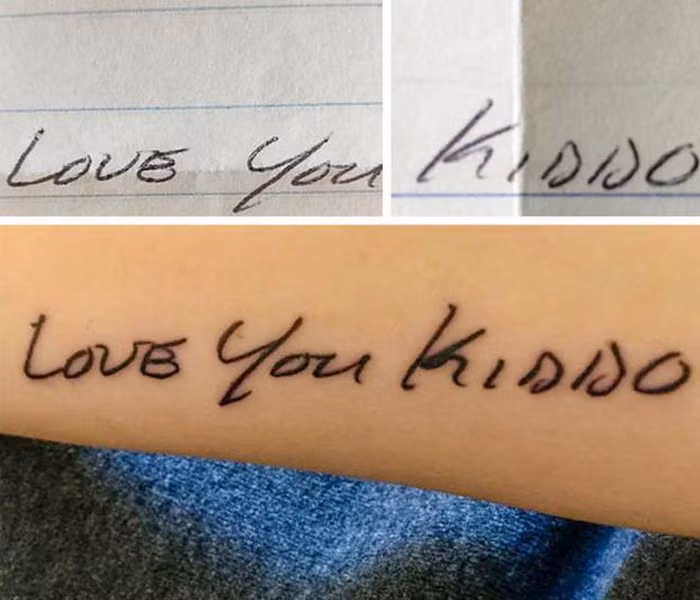 LOVE YOU
KIDDO
LOVE YOU KIDDO